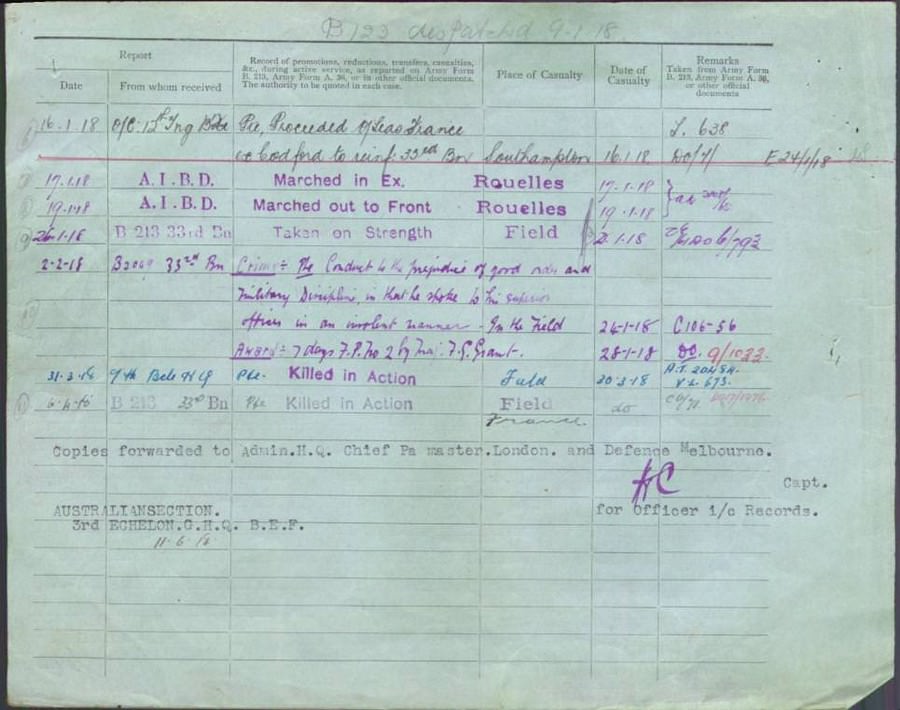 B 123 despatched 9.1.18.
Report
Record of promotions, reductions, transfers, casualties, &c., during active service, as reported on Army Form B. 213, Army Form A. 36, or in other official documents. The authority to be quoted in each case.
Place of Casualty
Date of Casualty
Remarks Taken from Army Form B. 213, Army Form A. 36, or other official documents
Date
From whom received
16.1.18 O/C. Tng Pte, Proceeded O/Seas France L. 638
Codford to reinf. 33rd Bn Southampton 16.1.18. E 24/1/18
17.1.18 A.I.B.D. Marched in Ex. Rouelles 17.1.18
19.1.18 A.I.B.D. Marched out to Front Rouelles 19.1.18
26.1.18 B 213 33rd Bn Taken on Strength Field
2-2-18 33rd Bn Crime:- Conduct to the prejudice of good order and
Military Discipline, in that he spoke to his superior
officer in an insolent manner. In the Field 26-1-18 C106-56
Award:- 7 days F.P. No 2 by Maj. F.G. Grant. 28-1-18 DO. 9/1033.
31.3.18 9th Bde Pte. Killed in Action Field 30.3.18
B 213 33rd Bn Pte Killed in Action Field do
France
Copies forwarded to Admin.H.Q. Chief Pa master.London. and Defence Melbourne.
HC
Capt.
AUSTRALIANSECTION. for Officer i/c Records.
3rd ECHELON.G.H.Q. B.E.F.
11.6.18